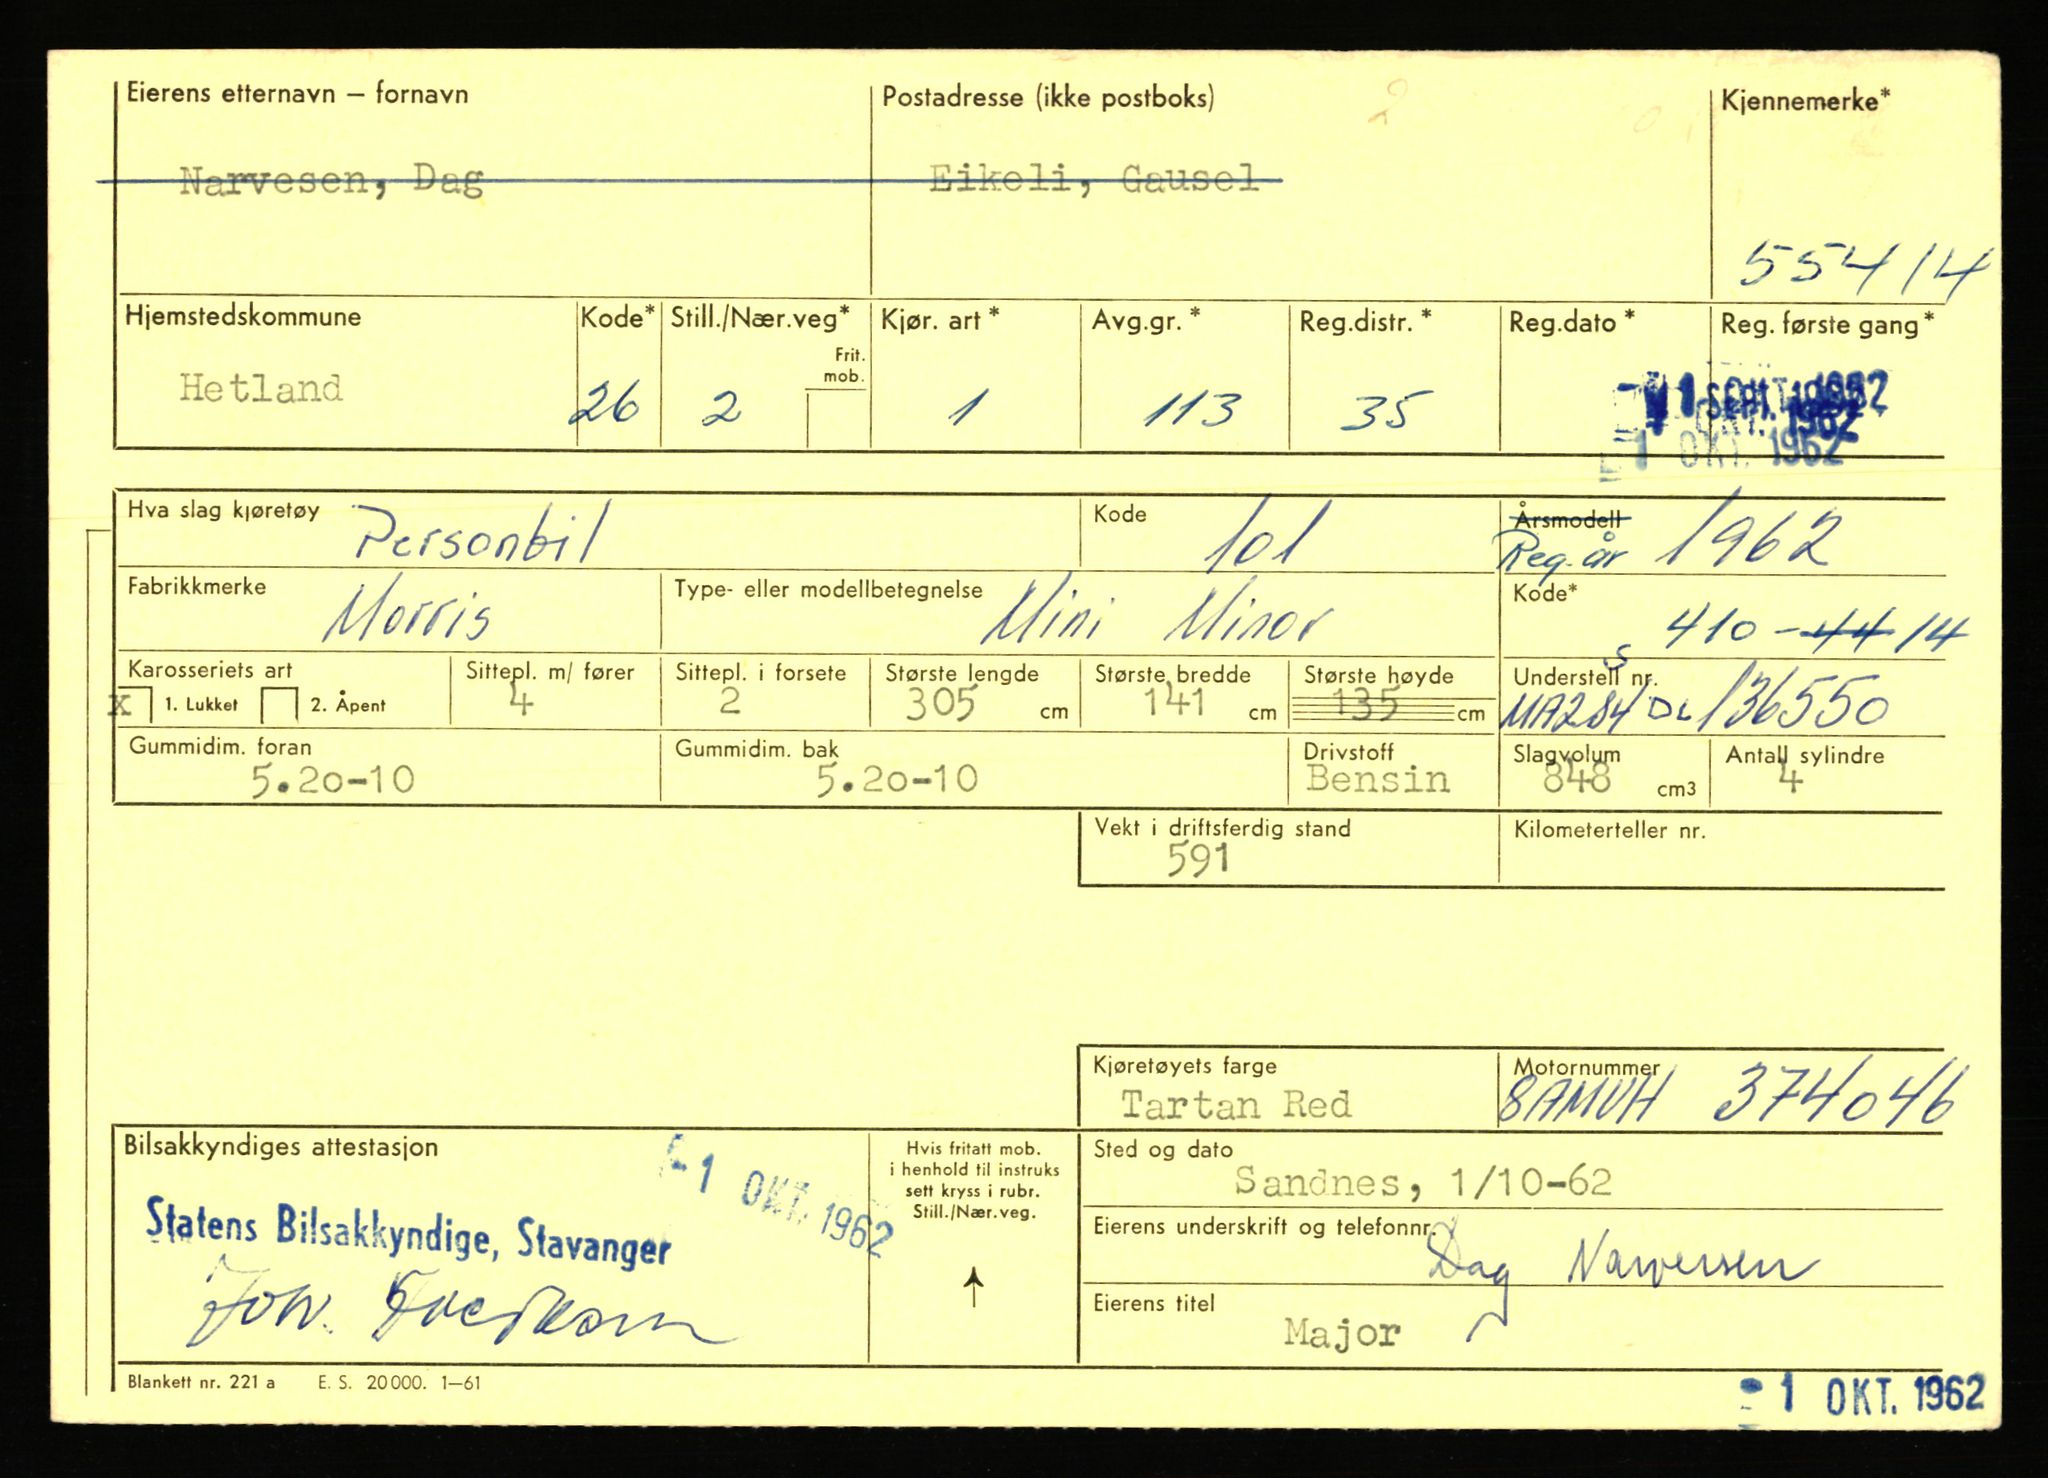 Eierens etternavn – fornavn
Postadresse (ikke postboks)
Kjennemerke*
Narvesen, Dag
Eikeli, Gausel
55414
Hjemstedskommune
Kode*
Still./Nær.veg*
Kjør. art*
Avg.gr.*
Reg.distr.*
Reg.dato*
Reg. første gang*
Frit. mob.
Hetland
26
2
1
113
35
1 OKT. 1962
Hva slag kjøretøy
Personbil
Kode
101
Årsmodell
Reg.år 1962
Fabrikkmerke
Morris
Type- eller modellbetegnelse
Mini Minor
Kode*
410-44 14
Karosseriets art
X 1. Lukket 2. Åpent
Sittepl. m/ fører
4
Sittepl. i forsete
2
Største lengde
305 cm
Største bredde
141 cm
Største høyde
135 cm
Understell nr.
MA2S4 DL 136550
Gummidim. foran
5.20-10
Gummidim. bak
5.20-10
Drivstoff
Bensin
Slagvolum
848 cm3
Antall sylindre
4
Vekt i driftsferdig stand
591
Kilometerteller nr.
Kjøretøyets farge
Tartan Red
Motornummer
8AMUH 374046
Bilsakkyndiges attestasjon
-1 OKT. 1962
Statens Bilsakkyndige, Stavanger
Hvis fritatt mob.
i henhold til instruks
sett kryss i rubr.
Still./Nær.veg.
Sted og dato
Sandnes, 1/10-62
Eierens underskrift og telefonnr.
Dag Narvesen
Eierens titel
Major
Blankett nr. 221 a E. S. 20000. 1–61
-1 OKT. 1962